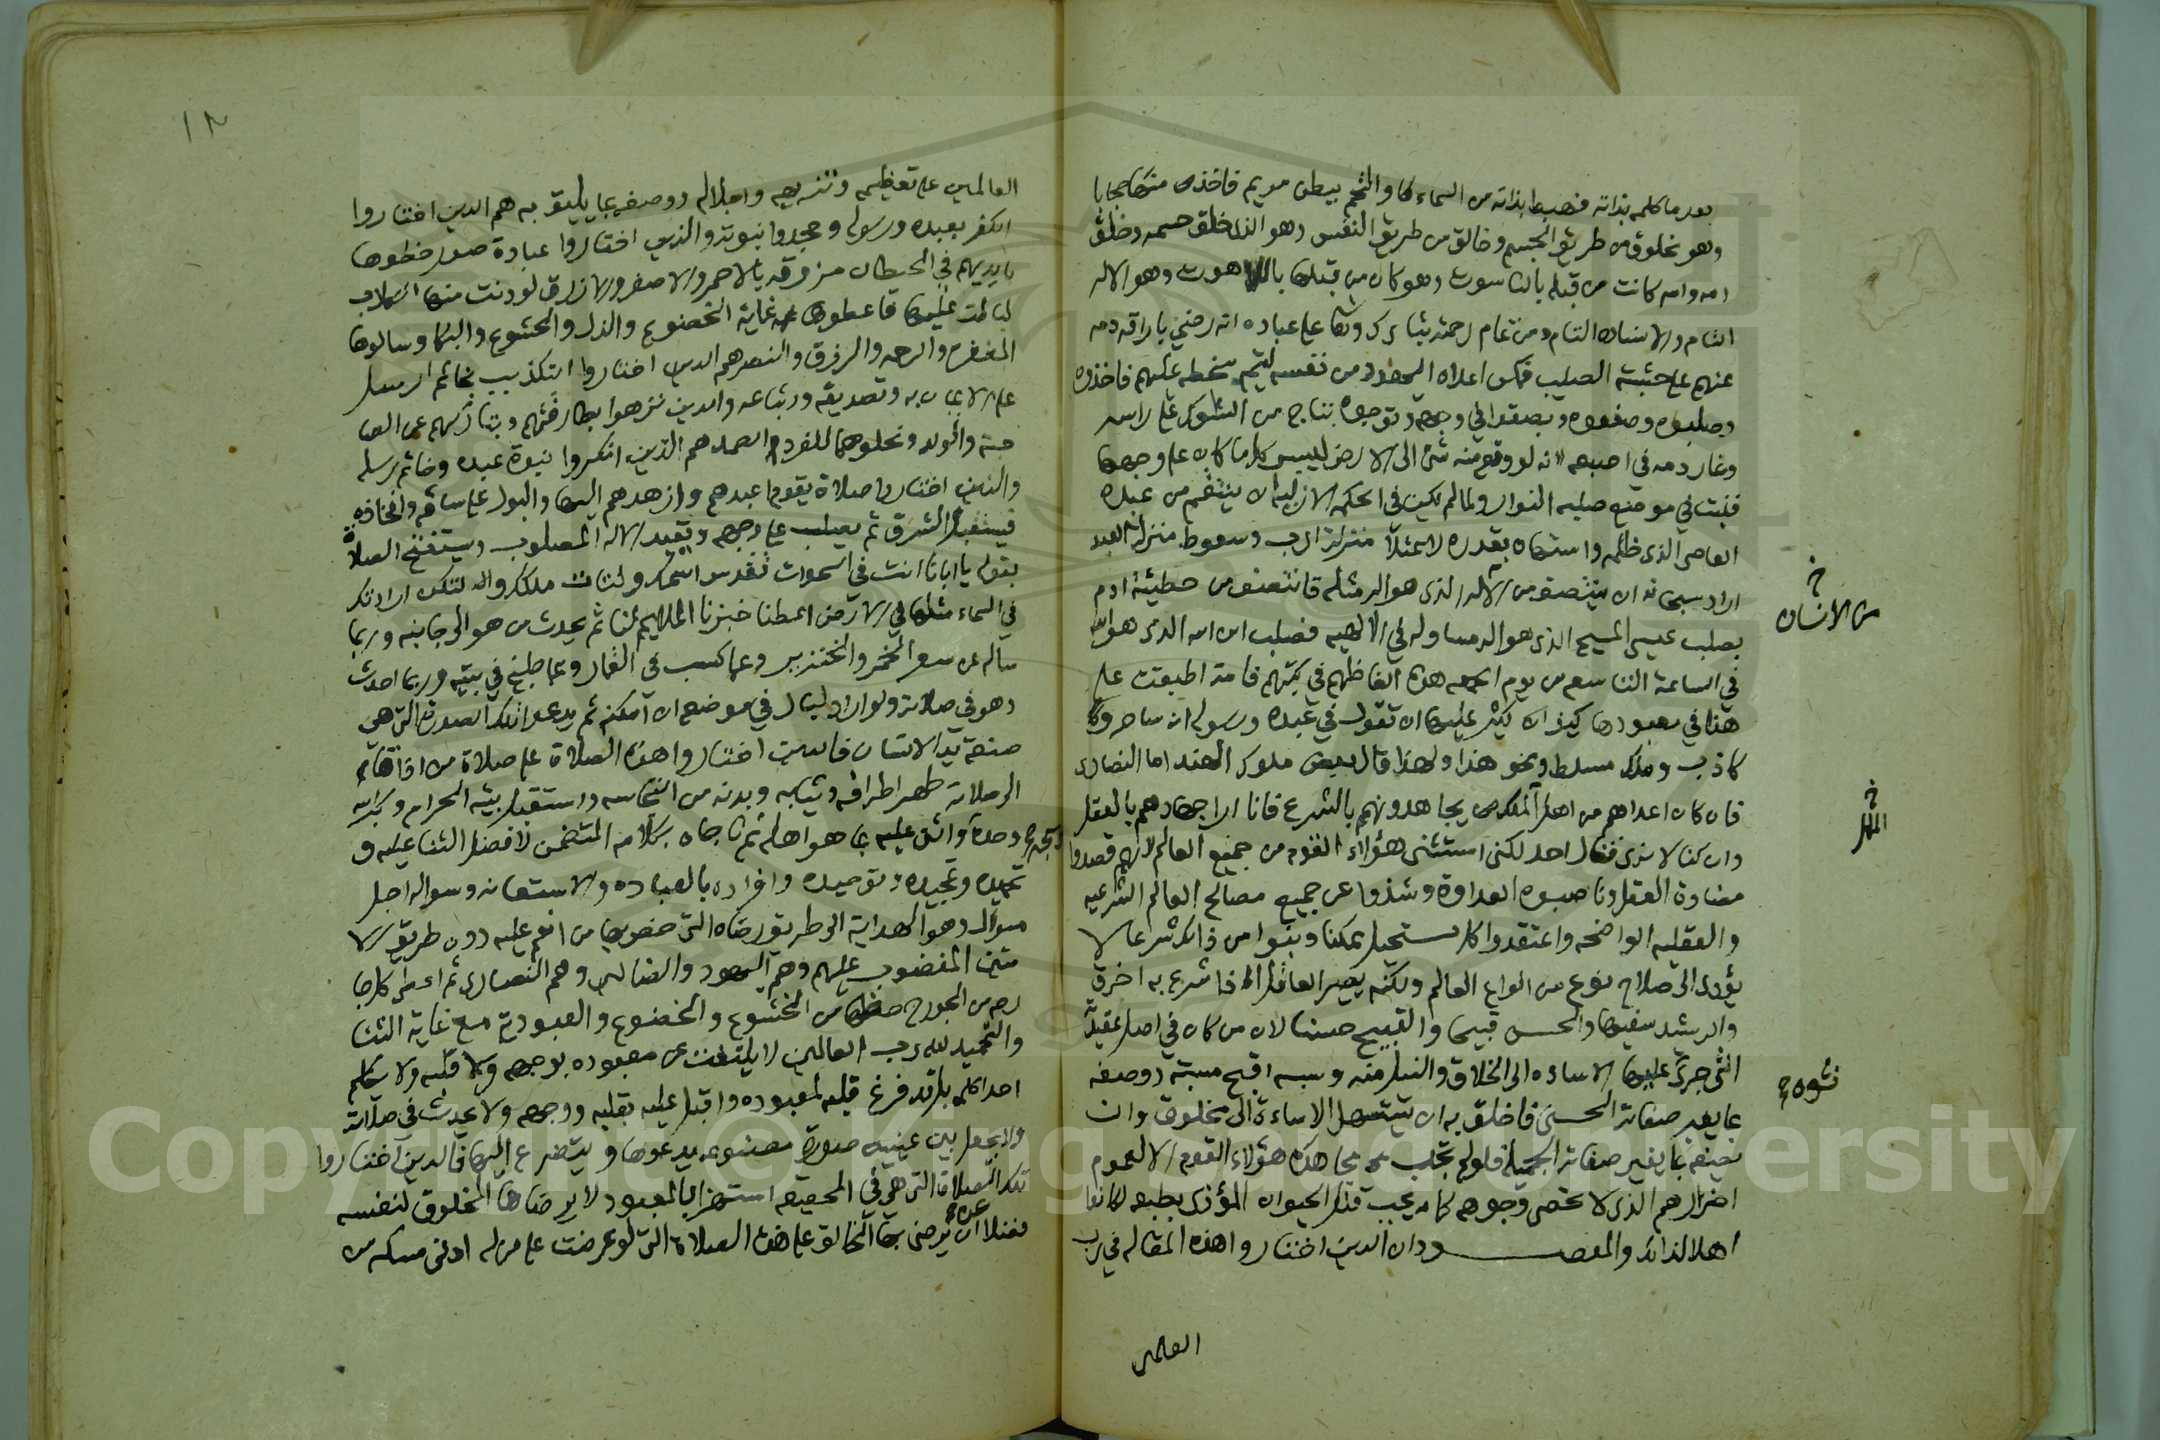 بعد ما كلمه بذاته فهبط بذاته من السماء كما و التحم ببطن مريم فاخذ منها حجابا
وهو مخلوق من طريق الجسم وخالق من طريق النفس وهو الذي خلق جسمه وخلق
امه وامه كانت من قبله بالناسوت وهو كان من قبلها باللاهوت وهو الاله
التام والانسان التام ومن تمام رحمته تبارك وتعا على عباده انه رضي باراقة دمه
عنهم على خشبة الصليب فمكن اعداه اليهود من نفسه ليتم سخطه عليهم فاخذوه
وصلبوه وصفعوه وبصقوا في وجهه وتوجوه بتاج من الشوك على راسه
وغار دمه في اصبعه لانه لو وقع منه شئ الى الارض ليبس كلما كان على وجهها
فنبت في موضع صلبه النوار ولما لم يكن في الحكمة الازليه ان ينتقم من عبده
العاصي الذي ظلمه واستهان بقدره لاعتلاء منزلة الرب وسقوط منزلة العبد
اراد سبحانه ان ينتصف من الاله الذي هو اله مثله فانتصف من خطيئة ادم
بصلب عيسى المسيح الذي هو اله مساو له في الالهيه فصلب ابن الله الذي هو الله
في الساعة التاسعه من يوم الجمعه هذه الفاظهم في كتبهم فامة اطبقت على
هذا في معبودها كيف يكثر عليها ان تقول في عبده ورسوله انه ساحر و
كاذب وملك مسلط ونحو هذا ولهذا قال بعض ملوك الهند اما النصارى
فان كان اعداهم من اهل الملك يجاهدونهم بالشرع فانا ارى جهادهم بالعقل
وان كنا لا نرى قتال احد لكني استثني هؤلاء القوم من جميع العالم لانهم قصدوا
مضادة العقل وناصبوه العداوة وشذوا عن جميع مصالح العالم الشرعيه
والعقليه الواضحه واعتقدوا كل مستحيل ممكنا وبنوا من ذلك شرعا لا
يؤدي الى صلاح نوع من انواع العالم ولكنه يصير العاقل اذا شرع به اخرق
والرشيد سفيها والحسن قبيحا والقبيح حسنا لان من كان في اصل عقيدته
التي جرى عليها الاساءه الى الخلاق والنيل منه وسبه اقبح مسبة ووصفه
بما يغير صفاته الحسنى فاخلق به ان يستسهل الاساءة الى مخلوق وان
يصفه بما يغير صفاته الجميلة فلو لم تجب مجاهدة هؤلاء القوم الا لعموم
اضرارهم الذي لا تحصى وجوهه كما يجب قتل الحيوان المؤذي بطبعه لكانوا
اهلا لذلك والمقصود ان الذين اختاروا هذه المقاله في رب
من الانسان
خ
خ
الملل
نشوه
العلمين
١٢
العالمين على تعظيمه وتنزيهه واجلاله ووصفه بما يليق به هم الذين اختاروا
الكفر بعبده ورسوله وجحدوا نبوته والذين اختاروا عبادة صور خطوها
بايديهم في الحيطان مزوقه بالاحمر والاصفر والازرق لو دنت منها الكلاب
لبالت عليها فاعطوها غاية الخضوع والذل والخشوع والبكا وسالوها
المغفرة والرحمه والرزق والنصر هم الذين اختاروا التكذيب بخاتم الرسل
على الايمان به وتصديقه واتباعه والذين نزهوا بطارقتهم وبتاركهم عن الصا
حبة والولد ونحلوهما للفرد الصمد هم الذين انكروا نبوة عبده وخاتم رسله
والذين اختاروا صلاة يقوم اعبدهم وازهدهم اليها والبول على ساقه وافخاذه
فيستقبل الشرق ثم يصلب على وجهه ويعبد الاله المصلوب ويستفتح الصلاة
بقوله يا ابانا انت في السموات تقدس اسمك وليات ملكك ولتكن ارادتك
في السماء مثلها في الارض اعطنا خبزنا الملايم لنا ثم يحدث من هو الى جانبه وربما
ساله عن سعر الخمر والخنزير وعما كسب في القمار وعما طبخ في بيته وربما احدث
وهو في صلاته ولو اراد لبال في موضعه ان امكنه ثم يدعو تلك الصورة التي هي
صنعة يد الانسان فالذين اختاروا هذه الصلاة على صلاة من اذا قام
الى صلاته طهر اطرافه وثيابه وبدنه من النجاسه واستقبل بيته الحرام وكبر الله
وحمده وحده واثنى عليه بما هو اهله ثم ناجاه بكلامه المتضمن لافضل الثنا عليه و
تحميده وتمجيده وتوحيده وافراده بالعباده والاستعانه وسواله اجل
مسؤال وهو الهداية الى طريق رضاه التي خص بها من انعم عليه دون طريق الا
متين المغضوب عليهم وهم اليهود والضالين وهم النصارى ثم اعطى كل جا
رحه من الجوارح حظها من الخشوع والخضوع والعبودية مع غاية الثنا
والتحميد لله رب العالمين لا يلتفت عن معبوده بوجهه ولا قلبه ولا يكلم
احدا كلمه بل قد فرغ قلبه لمعبوده واقبل عليه بقلبه ووجهه ولا يحدث في صلاته
ولا يجعل بين عينيه صورة مصنوعه يدعوها ويتضرع اليها فالذين اختاروا
تلك الصلاة التي هي في الحقيقه استهزا بالمعبود لا يرضاها المخلوق لنفسه
فضلا ان يرضى بها الخالق على هذه الصلاة التي لو عرضت على من له ادنى مسكه من